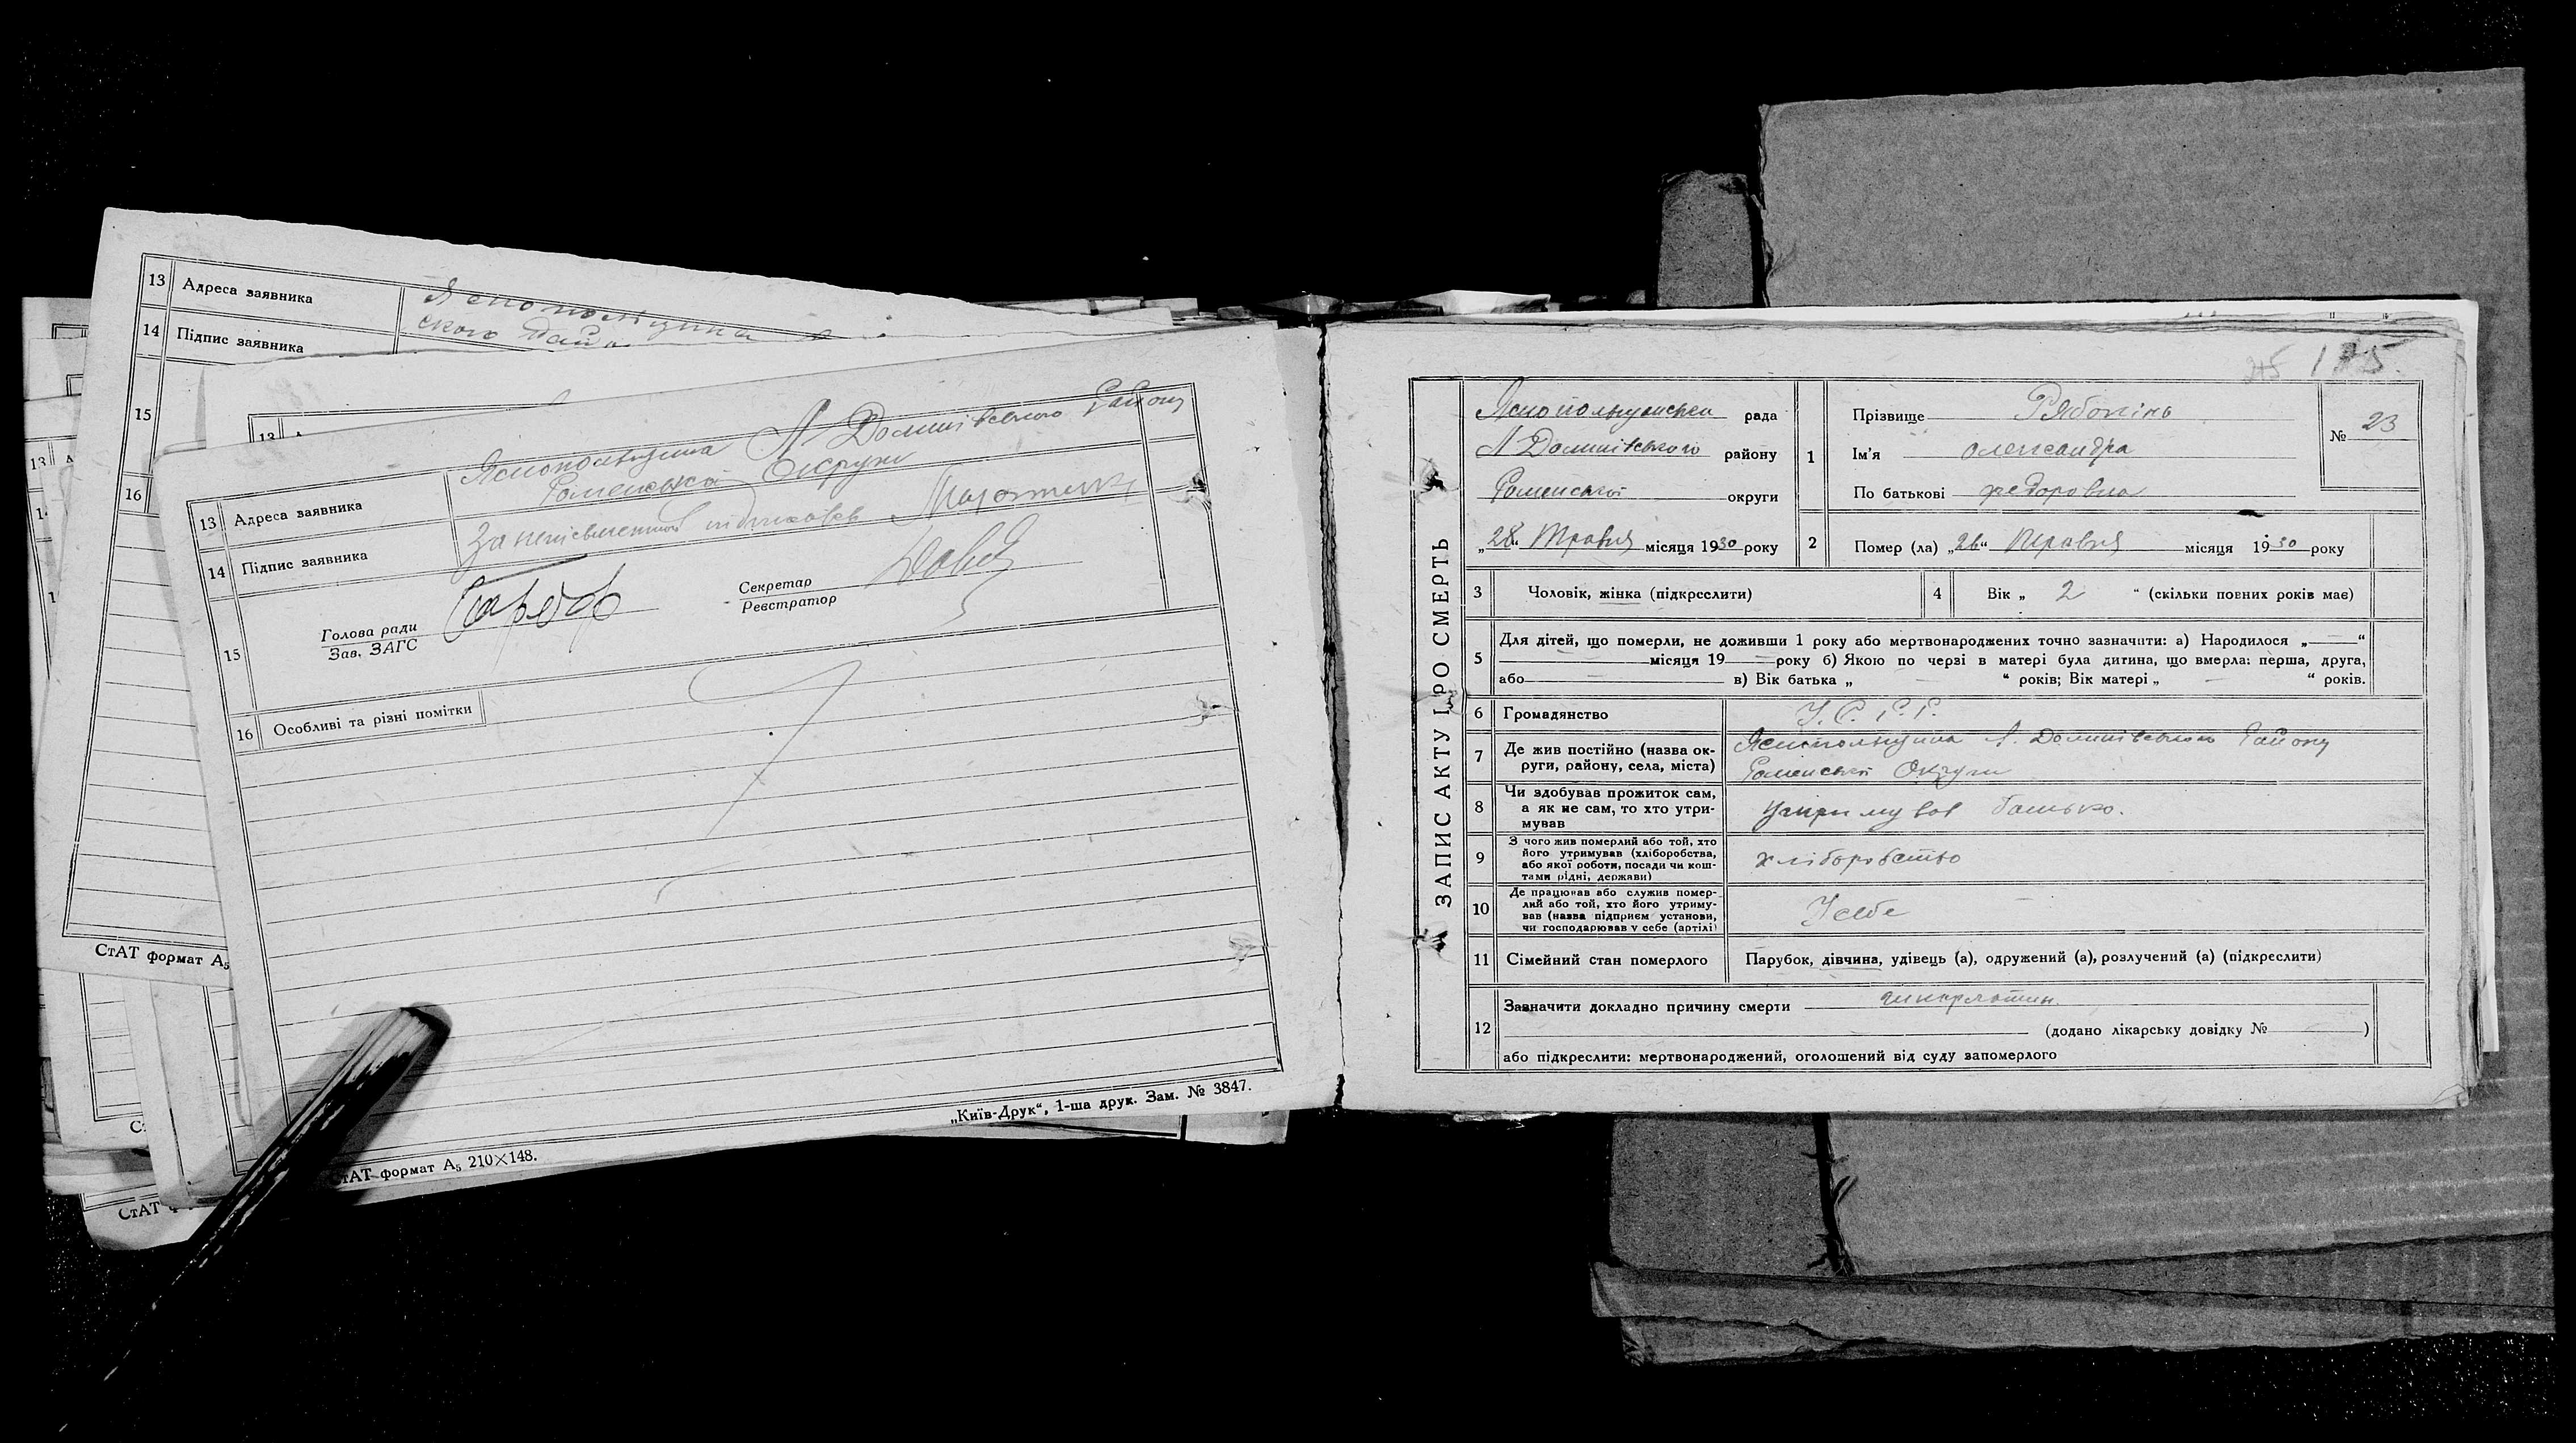 13 Адреса заявника
Яснопольщина
ского Рай
14 Підпис заявника
15
16
13
13 Адреса заявника
Яснопольщина Л Долинівського Району
Роменської Округи
14 Підпис заявника
За неписьменного підписавсь
15
Голова ради
Зав. ЗАГС
Секретар
Реєстратор
16 Особливі та різні помітки
СтАТ формат А₅
„Київ-Друк“, 1-ша друк. Зам. № 3847.
тАТ формат А₅ 210×148.
СтАТ
ЗАПИС АКТУ ПРО СМЕРТЬ
Яснопольщанська рада
Л Долинівського району
Роменської округи
„28“ Травня місяця 1930 року
1
Прізвище Рябокінь
Ім'я Олександра
По батькові Федоровна
№ 23
2 Помер (ла) „26“ Травня місяця 1930 року
3 Чоловік, жінка (підкреслити)
4 Вік „ 2 “ (скільки повних років має)
5 Для дітей, що померли, не доживши 1 року або мертвонароджених точно зазначити: а) Народилося „—“
— місяця 19— року б) Якою по черзі в матері була дитина, що вмерла: перша, друга,
або — в) Вік батька „ — “ років; Вік матері „ — “ років.
6 Громадянство У.С.Р.Р.
7 Де жив постійно (назва ок-
руги, району, села, міста)
Яснопольщина Л. Долинівського Району
Роменської Округи
8 Чи здобував прожиток сам,
а як не сам, то хто утри-
мував
утримував батько.
9 З чого жив померлий або той, хто
його утримував (хліборобства,
або якої роботи, посади чи кош-
тами рідні, держави)
хліборобство
10 Де працював або служив помер-
лий або той, хто його утриму-
вав (назва підприєм установи,
чи господарював у себе (артілі)
У себе
11 Сімейний стан померлого
Парубок, дівчина, удівець (а), одружений (а), розлучений (а) (підкреслити)
12 Зазначити докладно причину смерти шкарлатин.
(додано лікарську довідку № —)
або підкреслити: мертвонароджений, оголошений від суду запомерлого